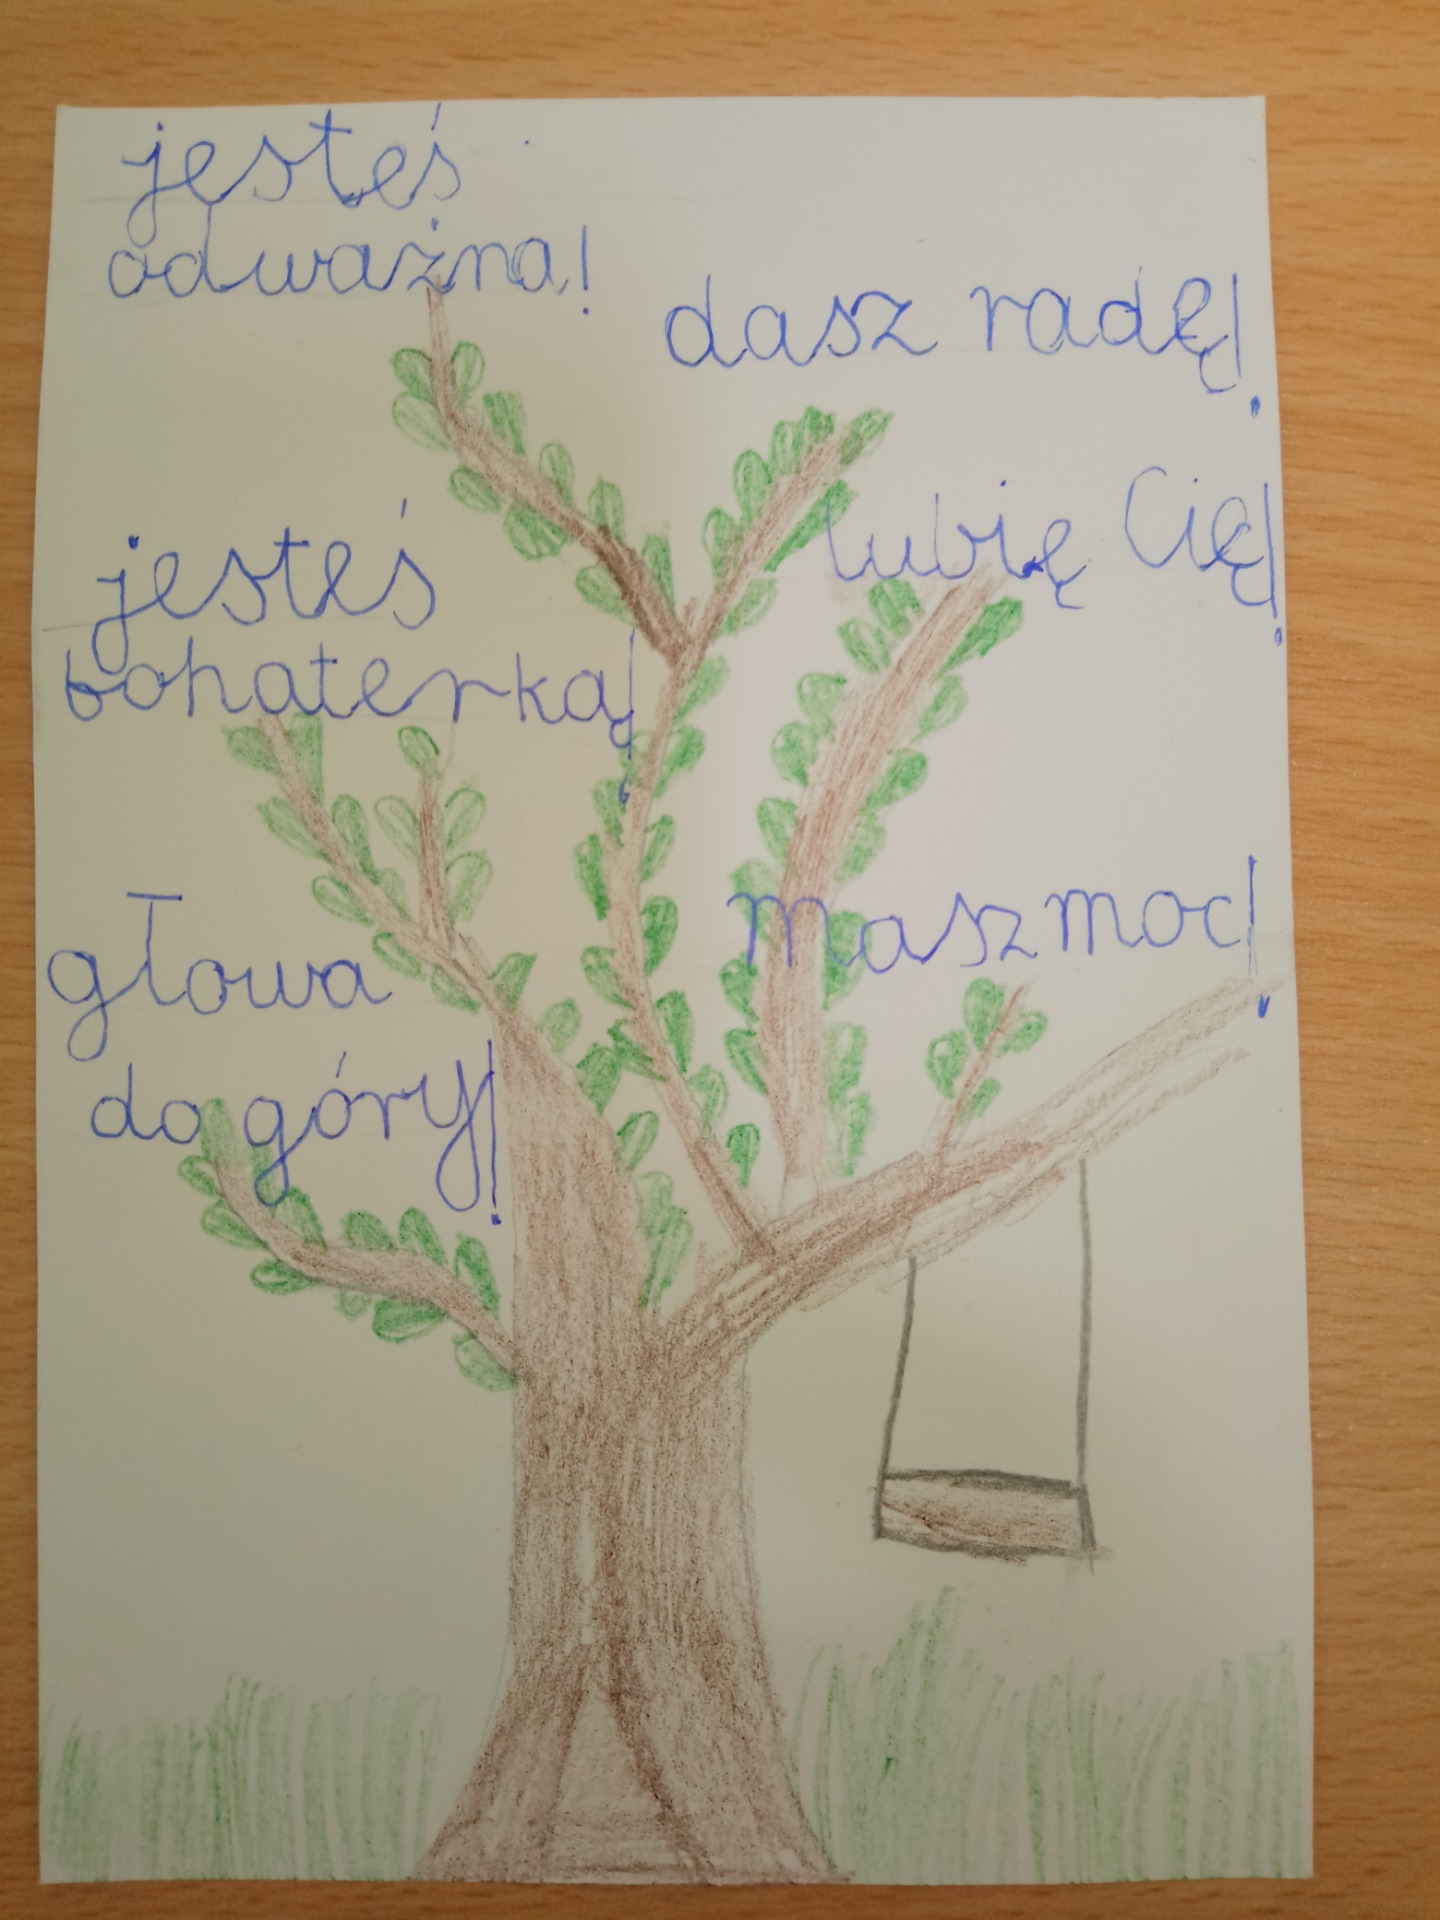 jesteś
odważna!
dasz radę!
lubię Cię!
jesteś
bohaterką!
masz moc!
głowa
do góry!